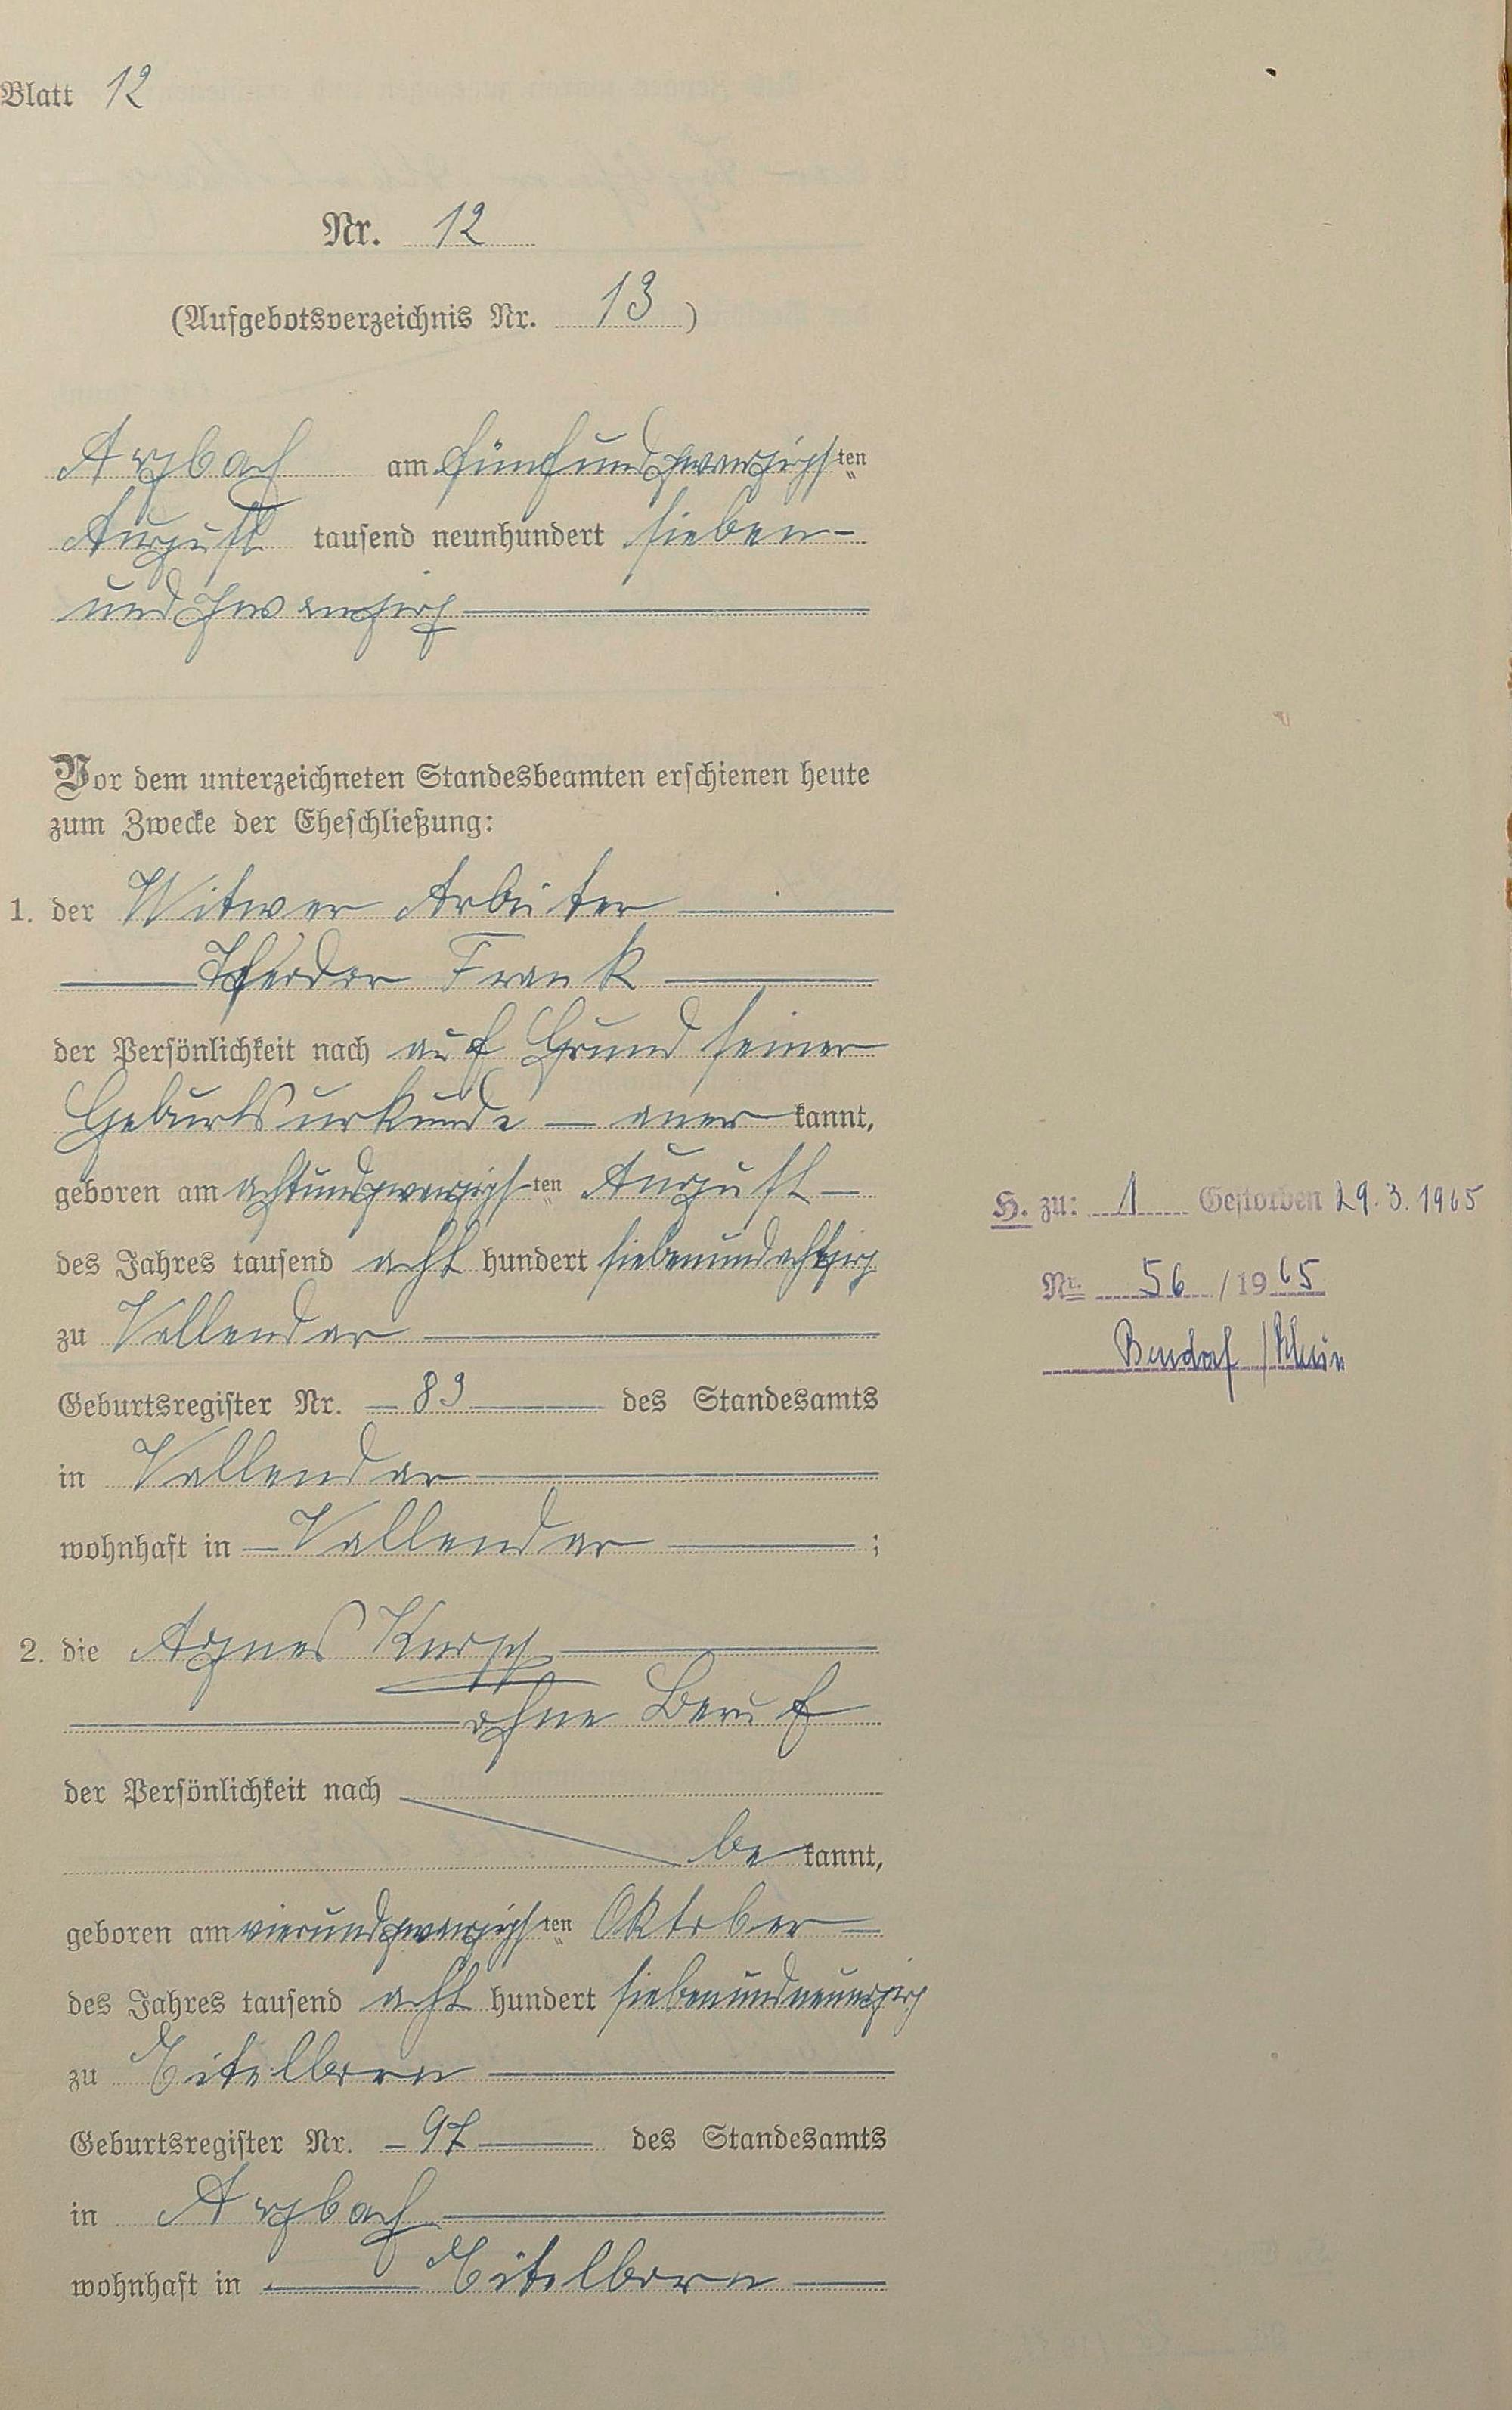 Blatt 12
Nr. 12
(Aufgebotsverzeichnis Nr. 13)
Arzbach am fünfundzwanzigsten
August tausend neunhundert sieben-
undzwanzig
Vor dem unterzeichneten Standesbeamten erschienen heute
zum Zwecke der Eheschließung:
1. der Witwer Arbeiter
Theodor Frank
der Persönlichkeit nach auf Grund seiner
Geburtsurkunde — anerkannt,
geboren am achtundzwanzigsten August
des Jahres tausend acht hundert siebenundachtzig
zu Vallendar
Geburtsregister Nr. 89 des Standesamts
in Vallendar
wohnhaft in Vallendar ;
2. die Agnes
ohne Beruf
der Persönlichkeit nach
bekannt,
geboren am vierundzwanzigsten Oktober
des Jahres tausend acht hundert siebenundneunzig
zu Eitelborn
Geburtsregister Nr. 97 des Standesamts
in Arzbach
wohnhaft in Eitelborn
H. zu: 1 Gestorben 29.3.1965
Nr. 56 / 1965
Bendorf / Rhein